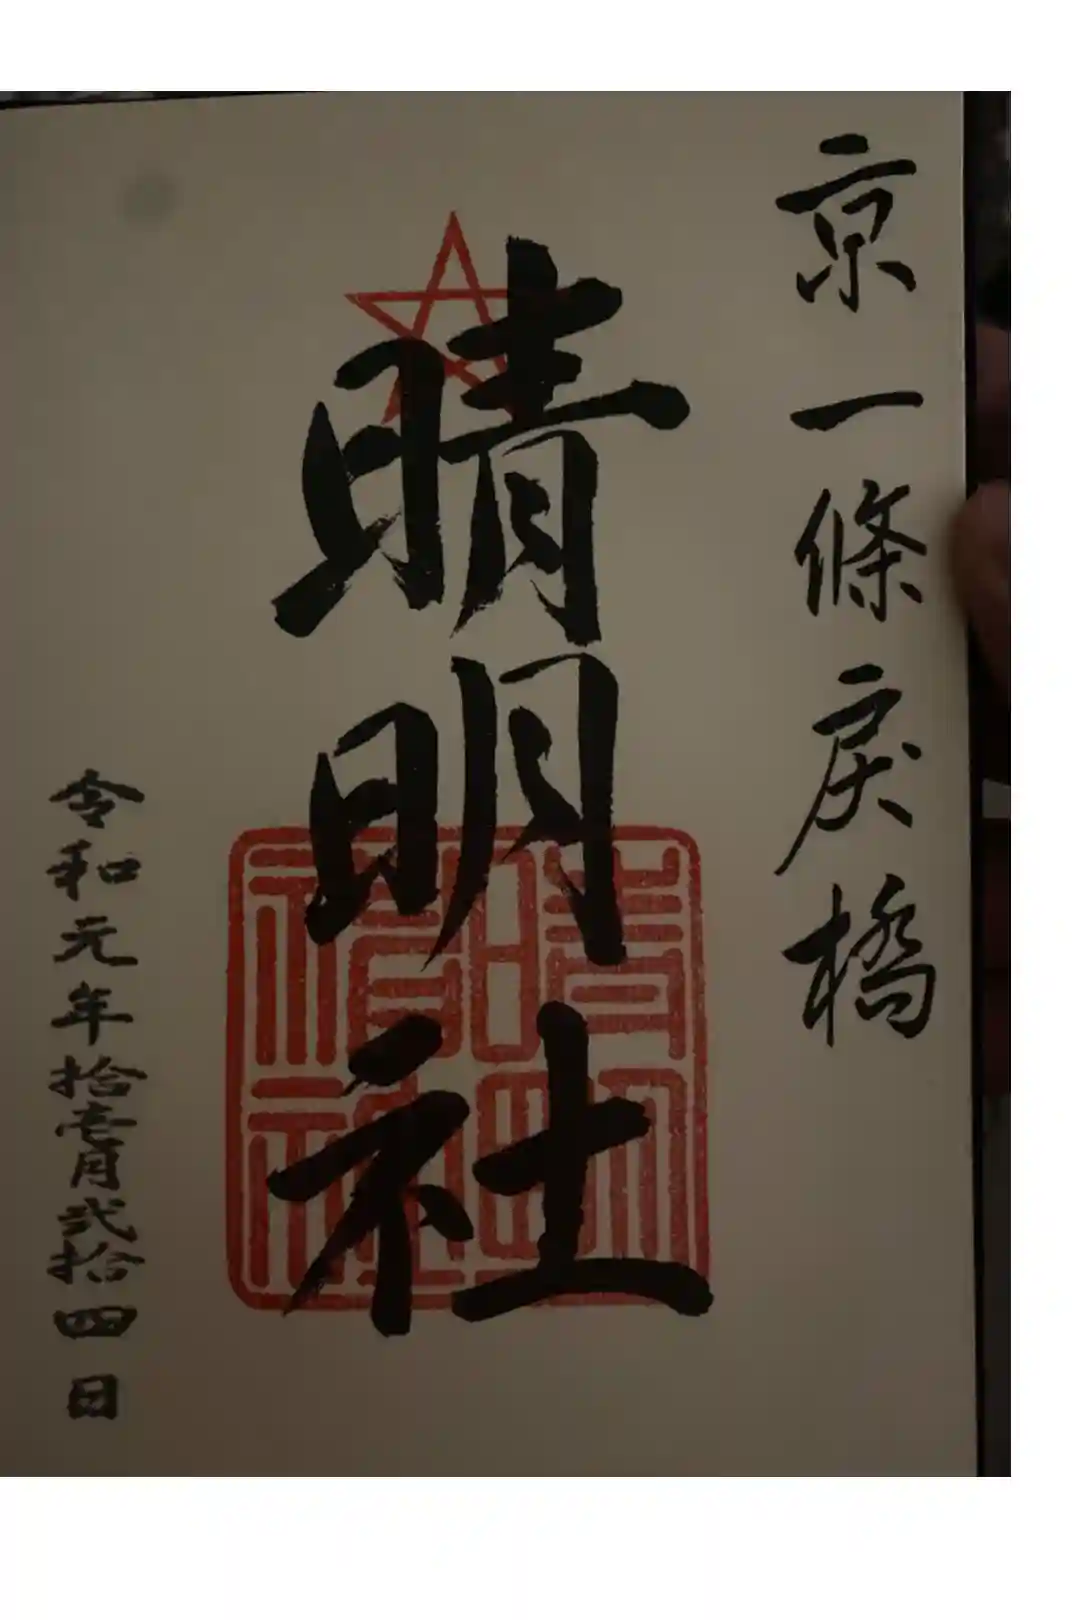 京一條戻橋
晴明社
令和元年拾壱月弐拾四日